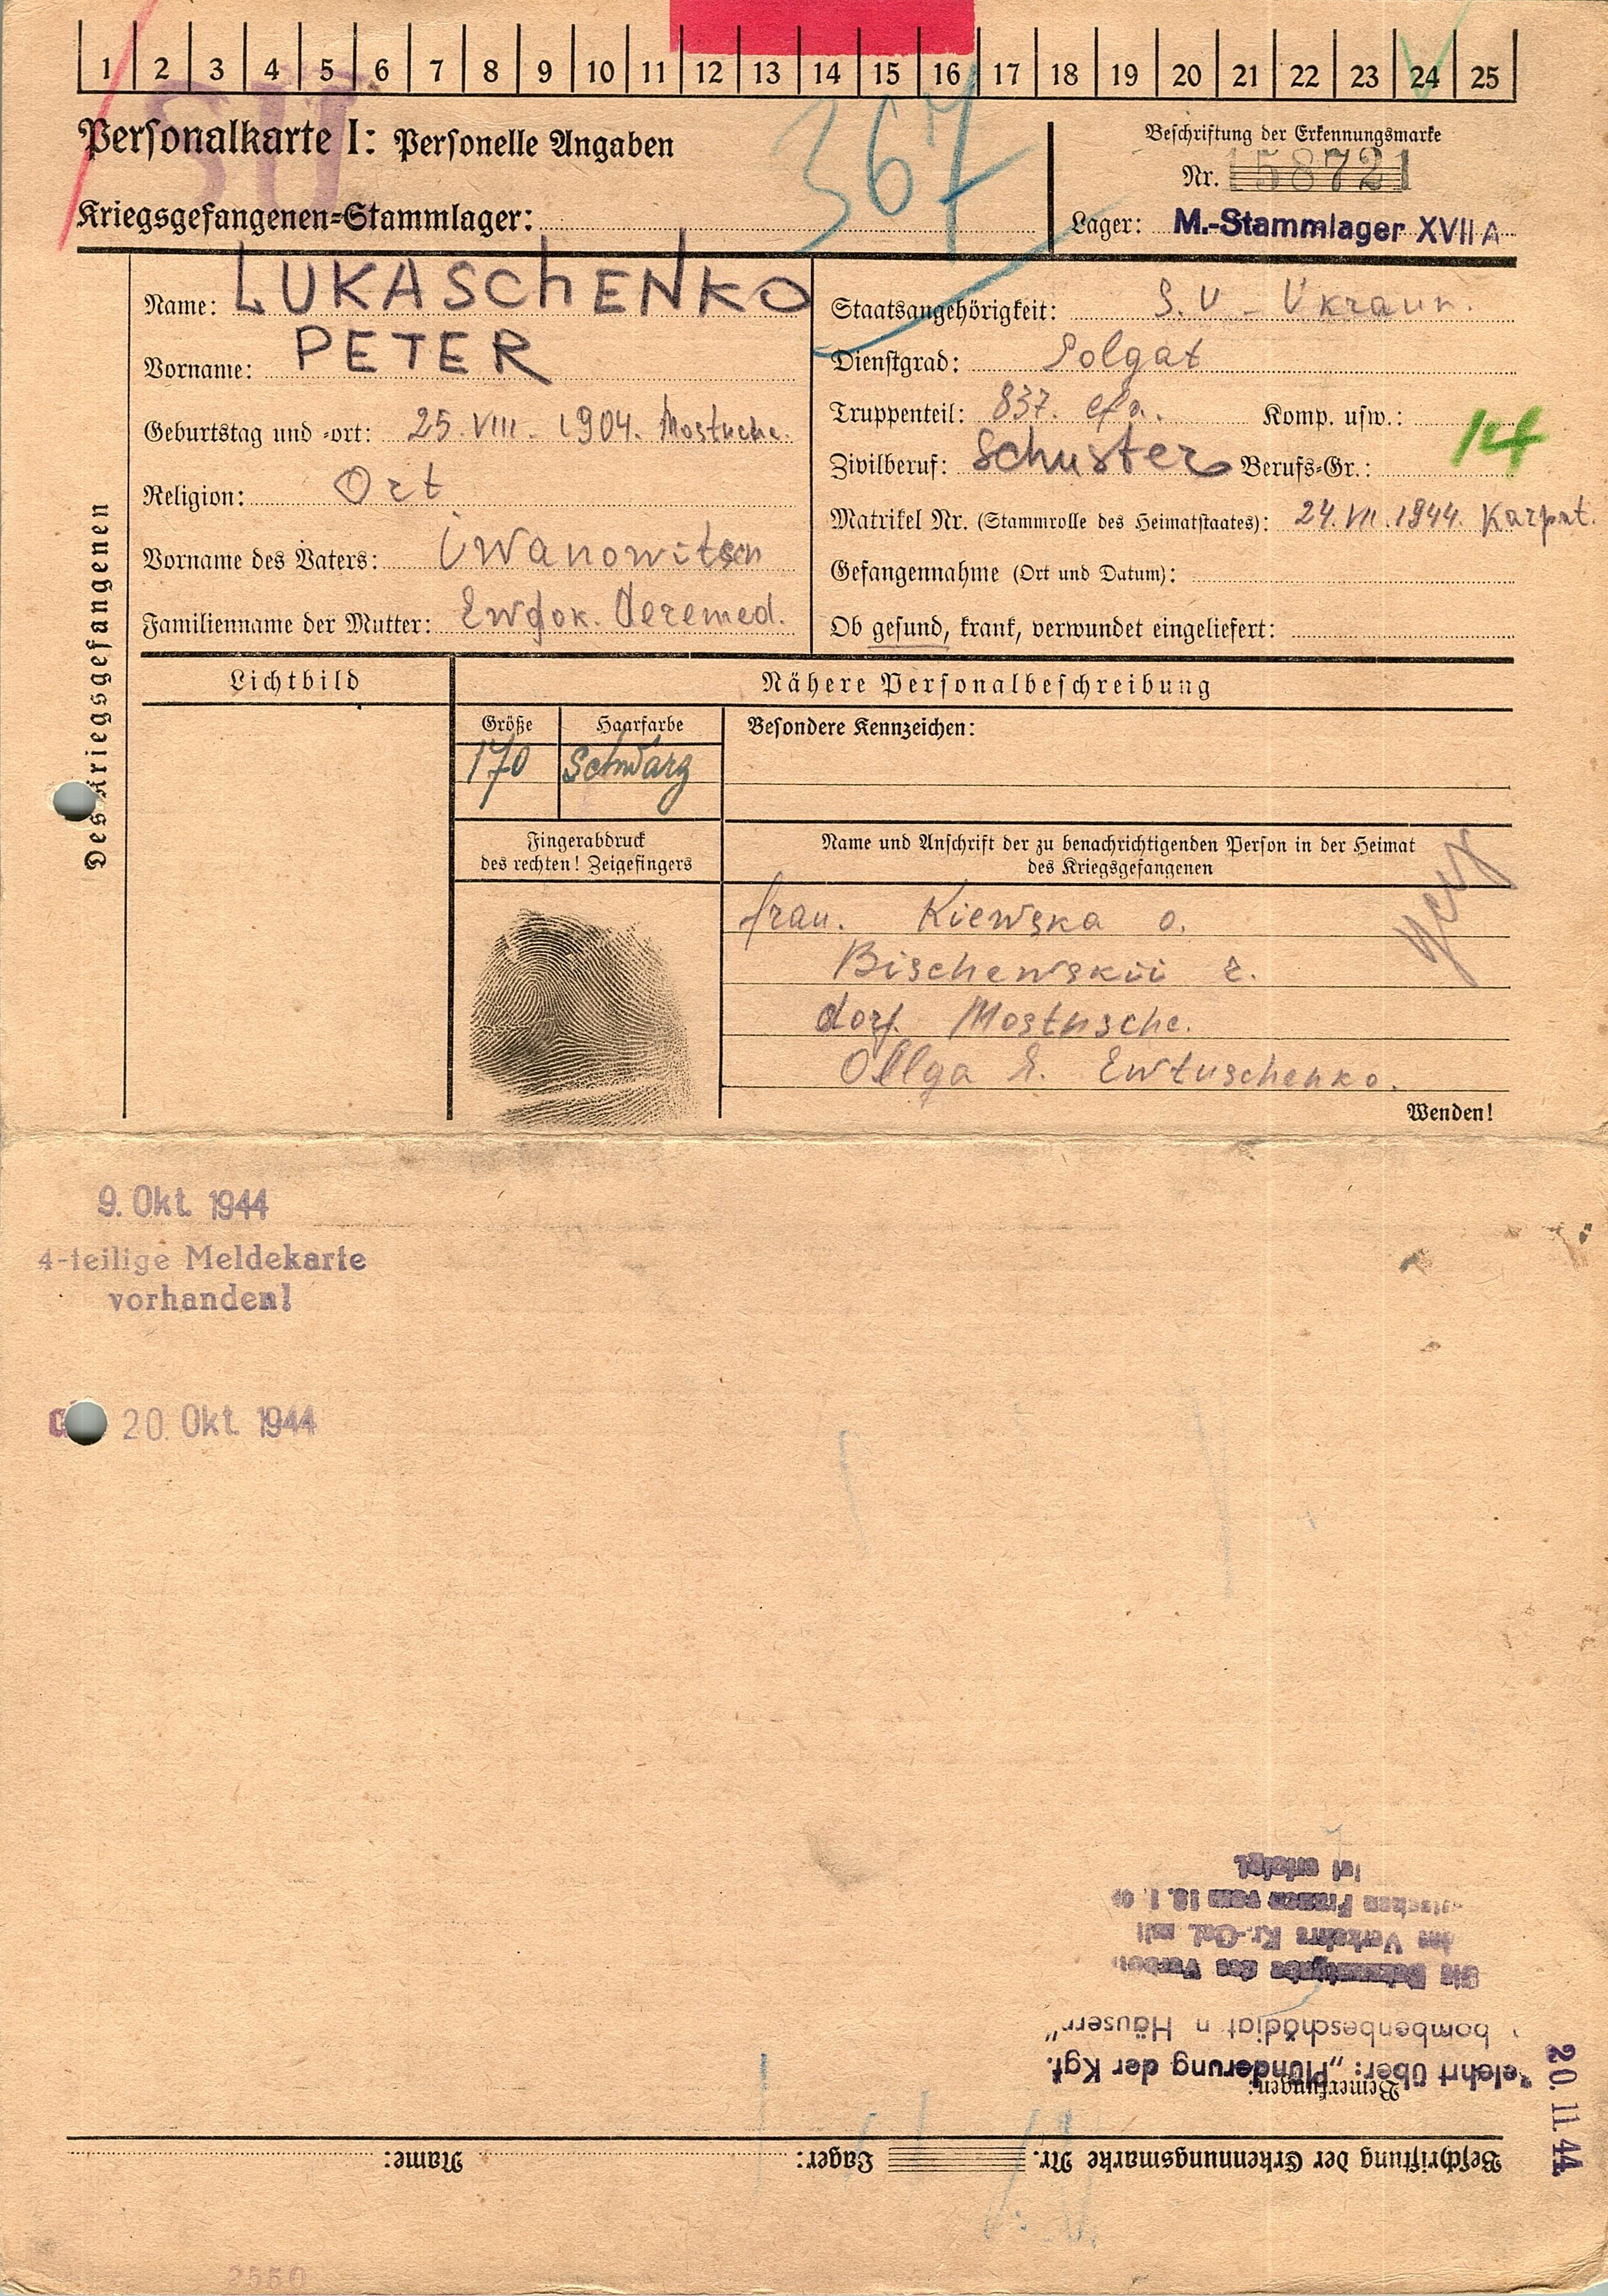 1 2 3 4 5 6 7 8 9 10 11 12 13 14 15 16 17 18 19 20 21 22 23 24 25
SU
Personalkarte I: Personelle Angaben
367
Beschriftung der Erkennungsmarke
Nr. 158721
Kriegsgefangenen-Stammlager:
Lager: M.-Stammlager XVII A
Des Kriegsgefangenen
Name: LUKASCHENKO
Vorname: PETER
Geburtstag und -ort: 25. VIII. 1904. Mostusche.
Religion: Ort
Vorname des Vaters: iwanowitsch
Familienname der Mutter: Ewdok.
Staatsangehörigkeit: S.U - Ukrain.
Dienstgrad: Solgat
Truppenteil: 837. Komp. usw.:
14
Zivilberuf: Schuster Berufs-Gr.:
Matrikel Nr. (Stammrolle des Heimatstaates): 24. VII. 1944. Karpat.
Gefangennahme (Ort und Datum):
Ob gesund, krank, verwundet eingeliefert:
Lichtbild
Nähere Personalbeschreibung
Größe
170
Haarfarbe
Schwarz
Besondere Kennzeichen:
Fingerabdruck
des rechten! Zeigefingers
Name und Anschrift der zu benachrichtigenden Person in der Heimat
des Kriegsgefangenen
frau. Kiewska o.
Bischewskii r.
dorf. Mostusche.
Ollga E. Ewtuschenko.
Wenden!
9. Okt. 1944
4-teilige Meldekarte
vorhanden!
20. Okt. 1944
Beschriftung der Erkennungsmarke Nr. Lager: Name:
Bemerkungen:
elehrt über: „Plünderung der Kgf.
bombenbeschädigt n Häusern"
Die Bekanntgabe des Verbot
des Verkehrs Kr.-Gef. mit
tschen Frauen vom 10. 1.
ist erfolgt.
20. 11. 44
2550